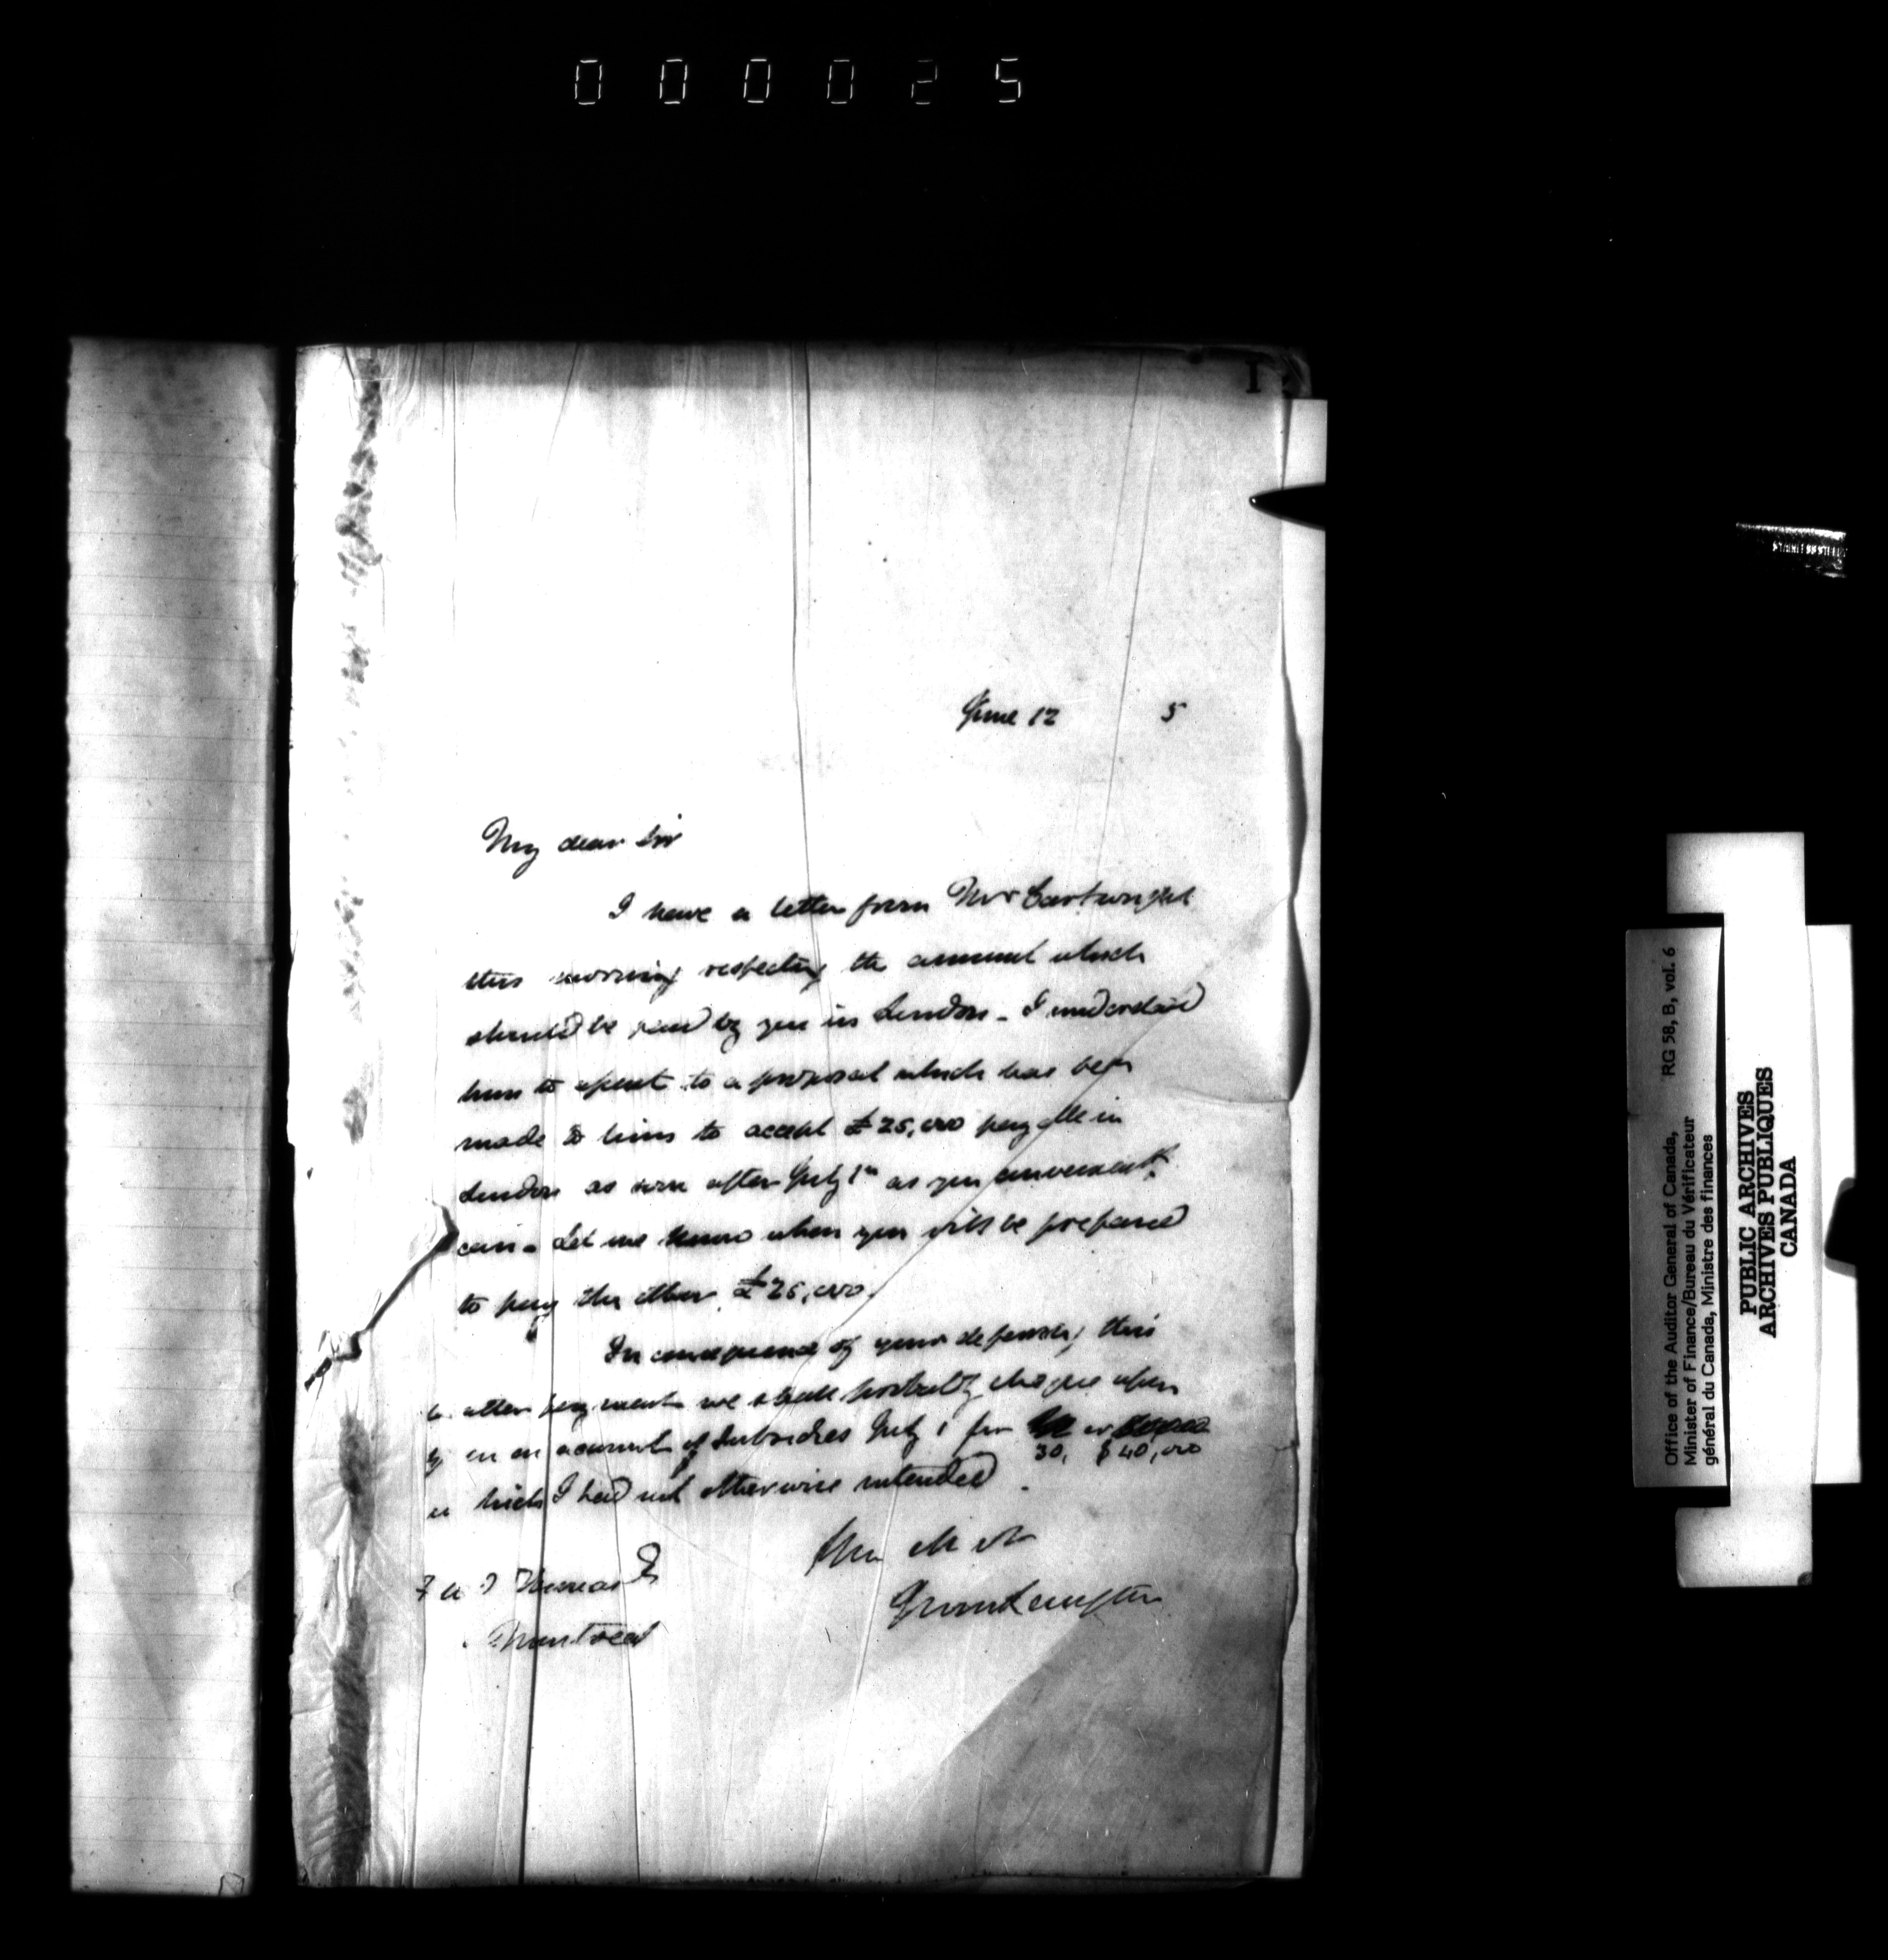 000025
1
June 12 5
My dear Sir
I have a letter from Mr Cartwright
this morning respecting the amount which
should be paid by you in London - I understand
him to to a proposal which has been
made to him to accept £25,000 payable in
London as soon after July 1st as you conveniently
can - Let me know when you will be prepared
to pay the other £25,000.
In consequence of your deferring this
latter payment we shall probably cheque upon
you on account of Subsidies July 1 for or
30, $40,000
which I had not otherwise intended.
F W Thomas Esq
Montreal
J M Langton
Office of the Auditor General of Canada,
Minister of Finance/Bureau du Vérificateur
général du Canada, Ministre des finances
RG 58, B, vol. 6
PUBLIC ARCHIVES
ARCHIVES PUBLIQUES
CANADA